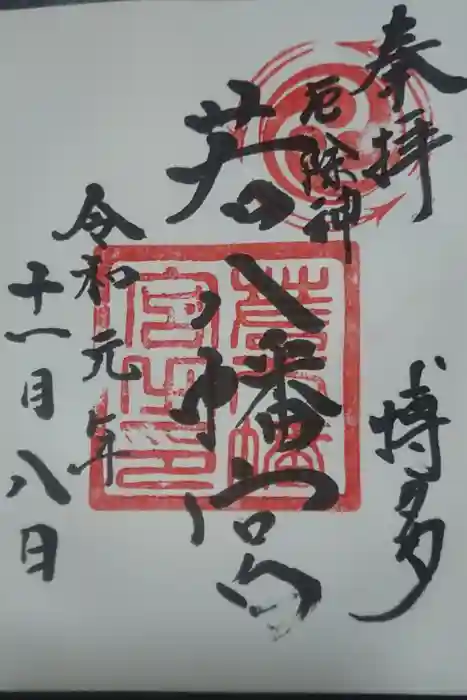 奉拝
厄除神
博多
若八幡宮
令和元年
十一月八日
若八幡
宮之印